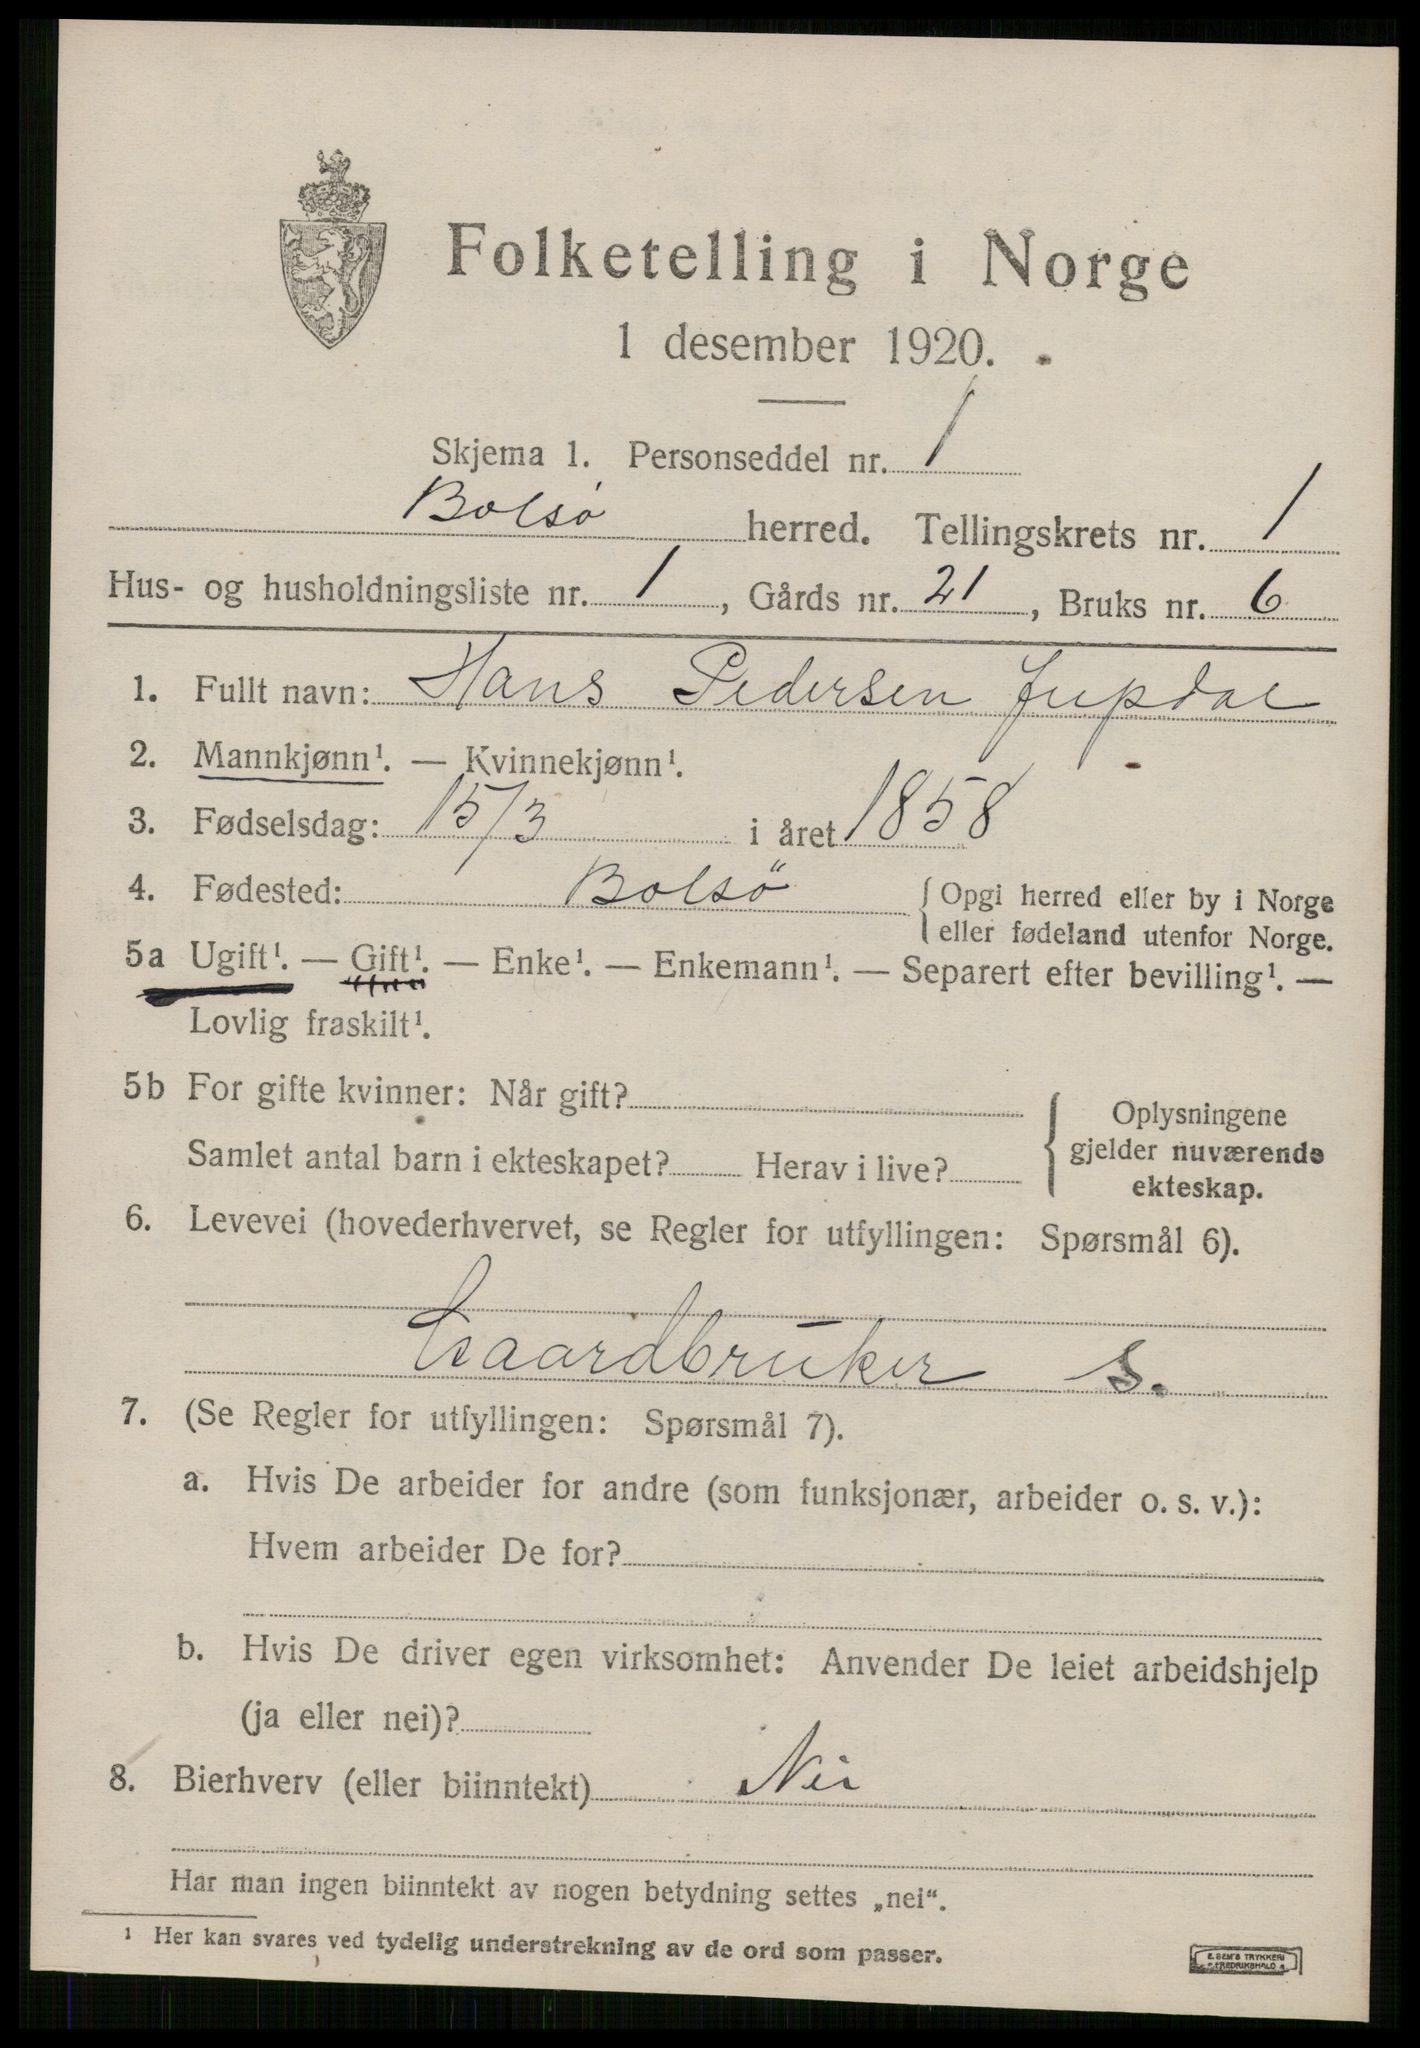 Folketelling i Norge
1 desember 1920.
Skjema 1. Personseddel nr. 1
Bolsø herred. Tellingskrets nr. 1
Hus- og husholdningsliste nr. 1, Gårds nr. 21, Bruks nr. 6
1. Fullt navn: Hans Pedersen
2. Mannkjønn¹. — Kvinnekjønn¹.
3. Fødselsdag: 15/3 i året 1858
4. Fødested: Bolsö { Opgi herred eller by i Norge
eller fødeland utenfor Norge.
5a Ugift¹. — Gift¹. — Enke¹. — Enkemann¹. — Separert efter bevilling¹. —
Lovlig fraskilt¹.
5b For gifte kvinner: Når gift?
Samlet antal barn i ekteskapet? Herav i live?
{ Oplysningene
gjelder nuværende
ekteskap.
6. Levevei (hovederhvervet, se Regler for utfyllingen: Spørsmål 6).
Gaardbruker S.
7. (Se Regler for utfyllingen: Spørsmål 7).
a. Hvis De arbeider for andre (som funksjonær, arbeider o. s. v.):
Hvem arbeider De for?
b. Hvis De driver egen virksomhet: Anvender De leiet arbeidshjelp
(ja eller nei)?
8. Bierhverv (eller biinntekt) Nei
Har man ingen biinntekt av nogen betydning settes „nei“.
¹ Her kan svares ved tydelig understrekning av de ord som passer.
E. SEM'S TRYKKERI
FREDRIKSHALD